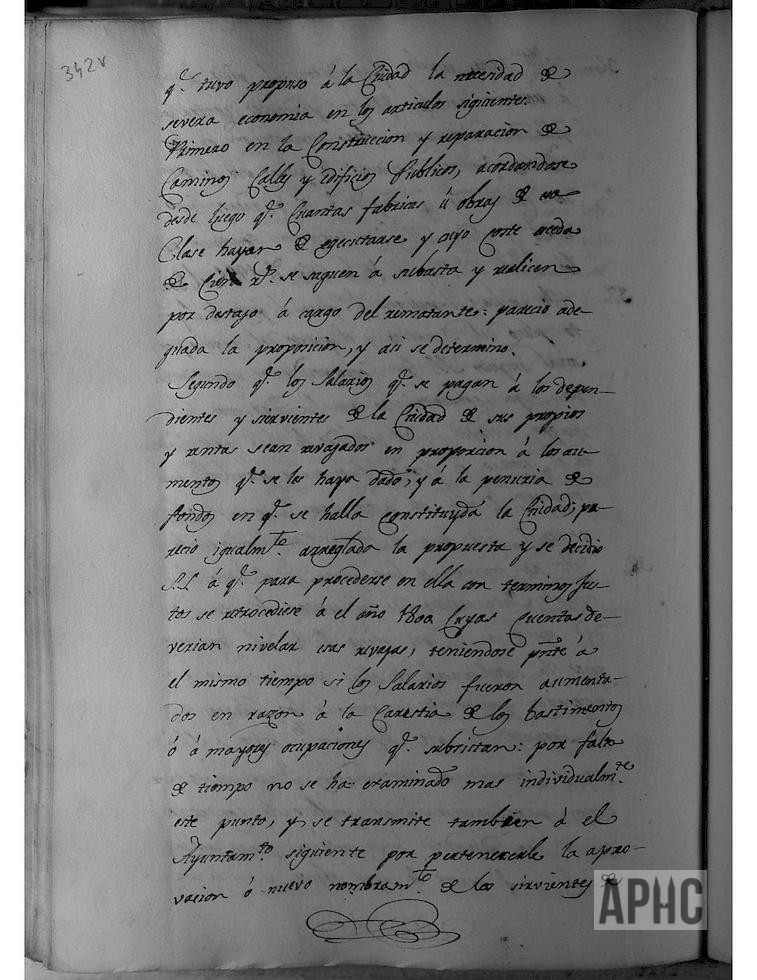 342v
q.e tuvo propuso á la Ciudad la necesidad de
severa economia en los articulos siguientes.
Primero en la Construccion y reparacion de
Caminos Calles y edificios Publicos, acordandose
desde luego q.e Cuantas fabricas ú obras de esa
Clase hayan de egecutarse y cuyo coste exceda
de Cien r.s se saquen á subasta y realicen
por destajo á cargo del rematante: parecio ade-
quada la proposicion, y asi se determino.
Segundo q.e los Salarios q.e se pagan á los depen-
dientes y sirvientes de la Ciudad de sus propios
y rentas sean revajados en proporcion á los au-
mentos q.e se les haya dado; y á la penuria de
fondos en q.e se halla constituyda la Ciudad; pa-
recio igualm.te arreglada la propuesta y se decidio
S.S. á q.e para procederse en ella con terminos jus-
tos se retrocediese á el año 1800 Cuyas Cuentas de-
verian nivelar esas revajas, teniendose pnte á
el mismo tiempo si los Salarios fueron aumenta-
dos en razon á la Carestia de los bastimentos
ó á mayores ocupaciones q.e subsistan: por falta
de tiempo no se ha examinado mas individualm.te
este punto, y se transmite tambien á el
Ayuntam.to siguiente por pertenecerle la apro-
vacion ó nuevo nombram.to de los sirvientes de
APHC